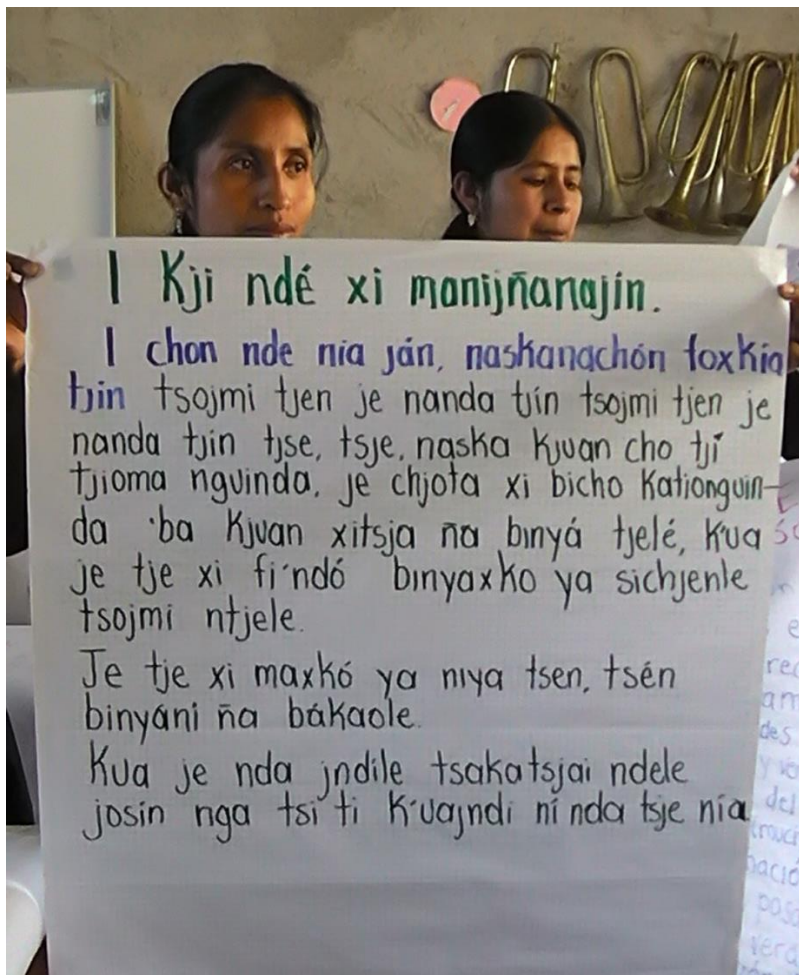 I Kji ndé xi manijñanajín.
I chon nde nía ján, naskanachón foxkía
tjin tsojmi tjen je nanda tjín tsojmi tjen je
nanda tjin tjse, tsje, naska kjuan cho tjí
tjioma nguinda, je chjota xi bicho kationguin-
da 'ba kjuan xitsja ña binyá tjelé, k'ua
je tje xi fi'ndó binyaxko ya sichjenle
tsojmi ntjele.
Je tje xi maxkó ya niya tsen, tsén
binyáni ña bákaole.
Kua je nda jndile tsakatsjai ndele
josín nga tsi ti k'uajndi ní nda tsje nía